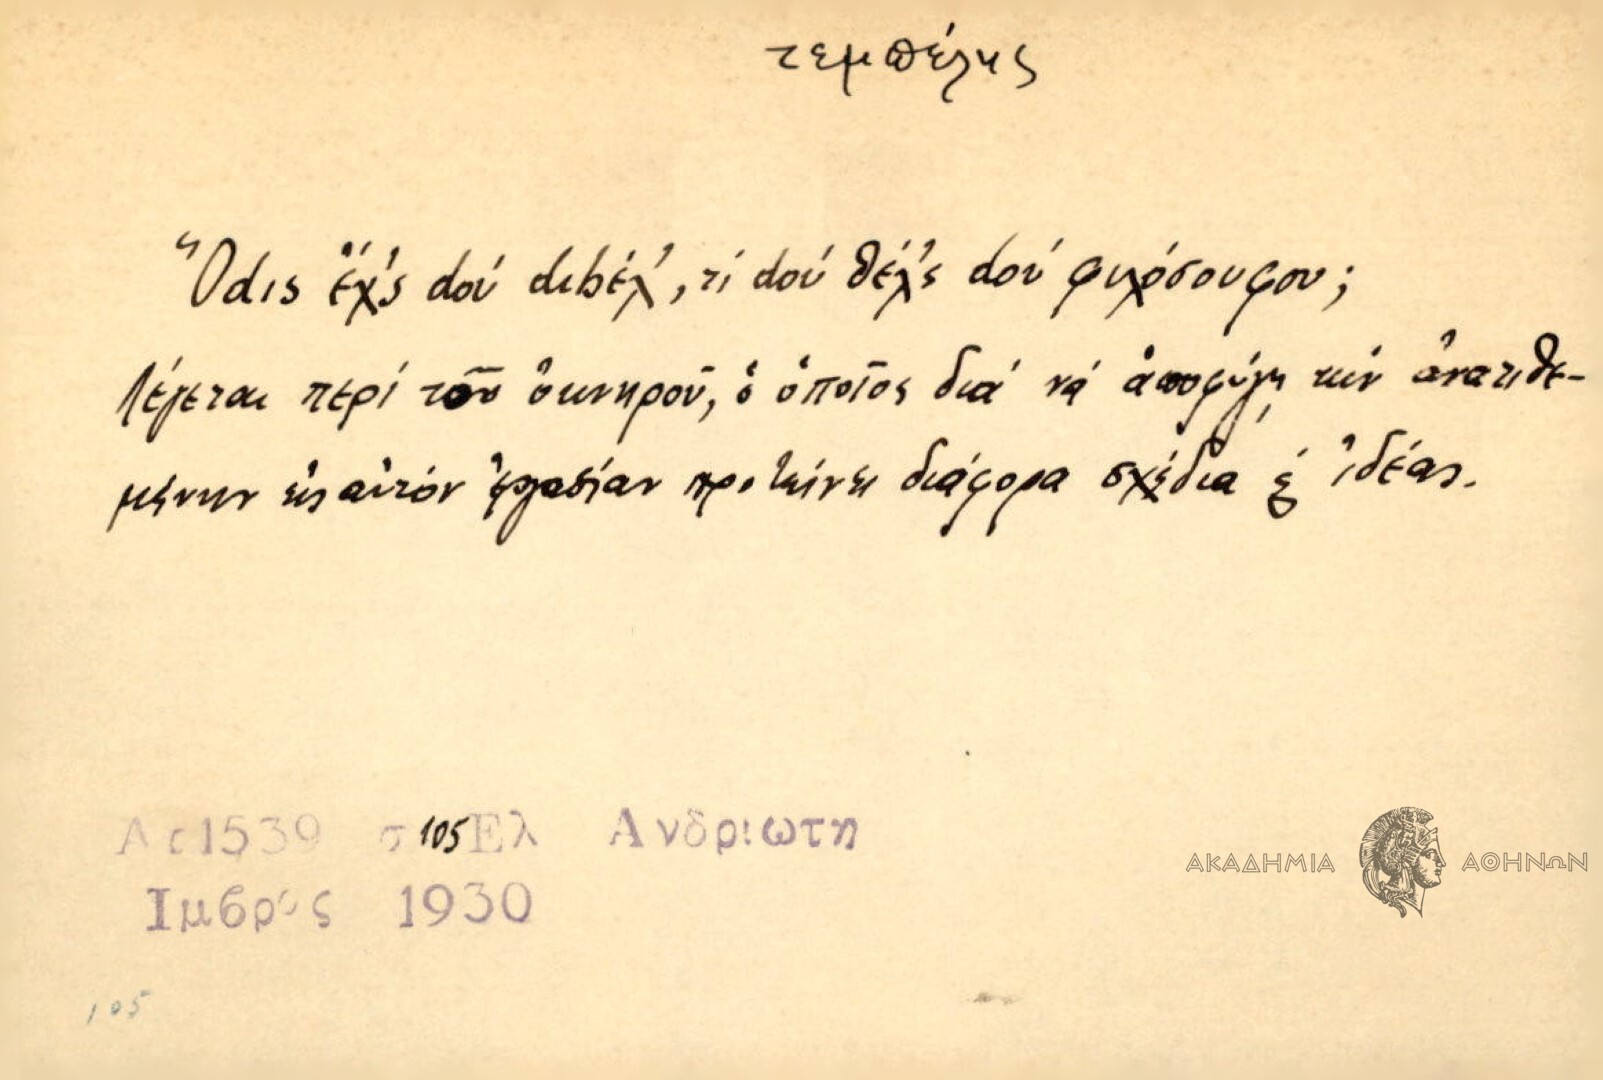 τεμπέλης
Ὅdις ἔχ̓ς dού dιbέλ̓, τί dού θέλ̓ς dού φιλόσουφου;
Λέγεται περί τοῦ ὀκνηροῦ, ὁ ὁποῖος διά νά ἀποφύγῃ τήν ἀνατιθε-
μένην εἰς αὐτόν ἐργασίαν προτείνει διάφορα σχέδια ἤ ἰδέας.
Αρ1539 σ105 Ελ Ανδριωτη
Ιμβρος 1930
ΑΚΑΔΗΜΙΑ ΑΘΗΝΩΝ
105